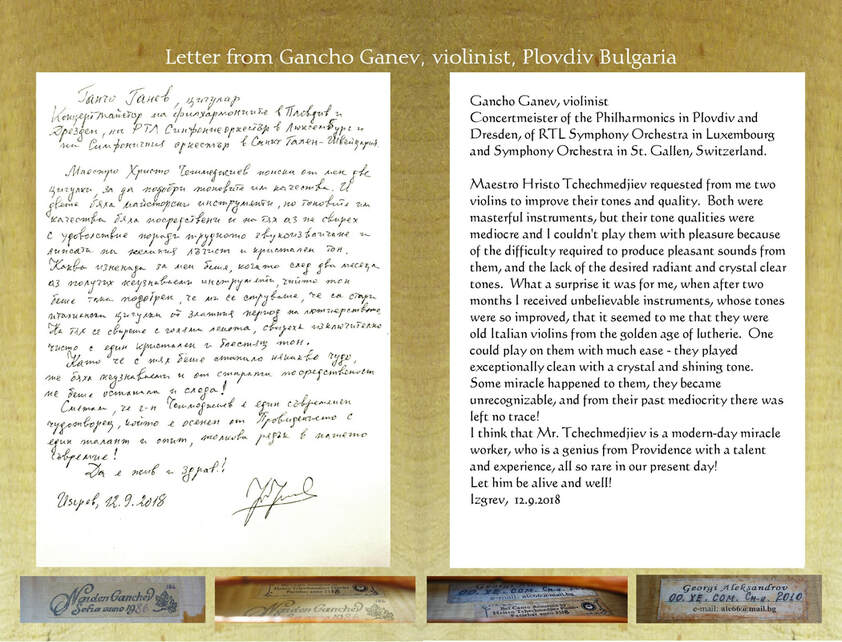 Letter from Gancho Ganev, violinist, Plovdiv Bulgaria
Ганчо Ганев, цигулар
Концертмайстор на филхармониите в Пловдив и
Дрезден, на РТЛ Симфонеоркестър в Люксембург и
на Симфоничния оркестър в Санкт Гален-Швейцария.
Маестро Христо Чешмеджиев поиска от мен две
цигулки, за да подобри тоновите им качества. И
двете бяха майсторски инструменти, но тоновите им
качества бяха посредствени и на тях аз не свирех
с удоволствие поради трудното звукоизвличане и
липсата на желания лъчист и кристален тон.
Каква изненада за мен беше, когато след два месеца
аз получих неузнаваеми инструменти, чийто тон
беше така подобрен, че ми се струваше, че са стари
италиански цигулки от златния период на лютиерството.
На тях се свиреше с голяма лекота, свиреха изключително
чисто с един кристален и блестящ тон.
Като че с тях беше станало някакво чудо,
те бяха неузнаваеми и от старата посредственост
не беше останала и следа!
Считам, че г-н Чешмеджиев е един съвременен
чудотворец, който е осенен от Провидението с
един талант и опит, толкова рядък в нашето
съвремие!
Да е жив и здрав!
Изгрев, 12.9.2018
Gancho Ganev, violinist
Concertmeister of the Philharmonics in Plovdiv and
Dresden, of RTL Symphony Orchestra in Luxembourg
and Symphony Orchestra in St. Gallen, Switzerland.
Maestro Hristo Tchechmedjiev requested from me two
violins to improve their tones and quality. Both were
masterful instruments, but their tone qualities were
mediocre and I couldn't play them with pleasure because
of the difficulty required to produce pleasant sounds from
them, and the lack of the desired radiant and crystal clear
tones. What a surprise it was for me, when after two
months I received unbelievable instruments, whose tones
were so improved, that it seemed to me that they were
old Italian violins from the golden age of lutherie. One
could play on them with much ease - they played
exceptionally clean with a crystal and shining tone.
Some miracle happened to them, they became
unrecognizable, and from their past mediocrity there was
left no trace!
I think that Mr. Tchechmedjiev is a modern-day miracle
worker, who is a genius from Providence with a talent
and experience, all so rare in our present day!
Let him be alive and well!
Izgrev, 12.9.2018
Naiden Ganchev
Sofia anno 1986
Naiden Ganchev
Georgi Aleksandrov
OO. XE. COM. Сн-е. 2010
e-mail: ale66@mail.bg